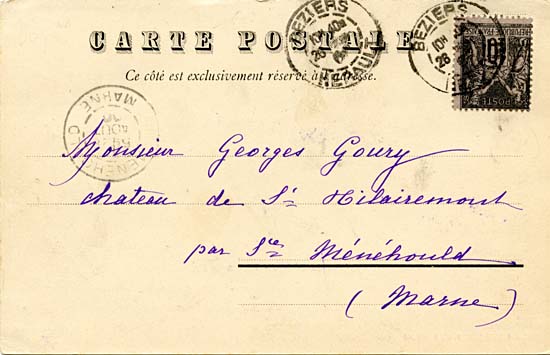 CARTE POSTALE
Ce côté est exclusivement réservé à l'adresse.
BEZIERS
HERAULT
BEZIERS
10
POSTES
REPUBLIQUE FRANCAISE
MARNE
AOUT
Monsieur Georges Goury
chateau de St Hilairemont
par Ste Ménéhould
(Marne)